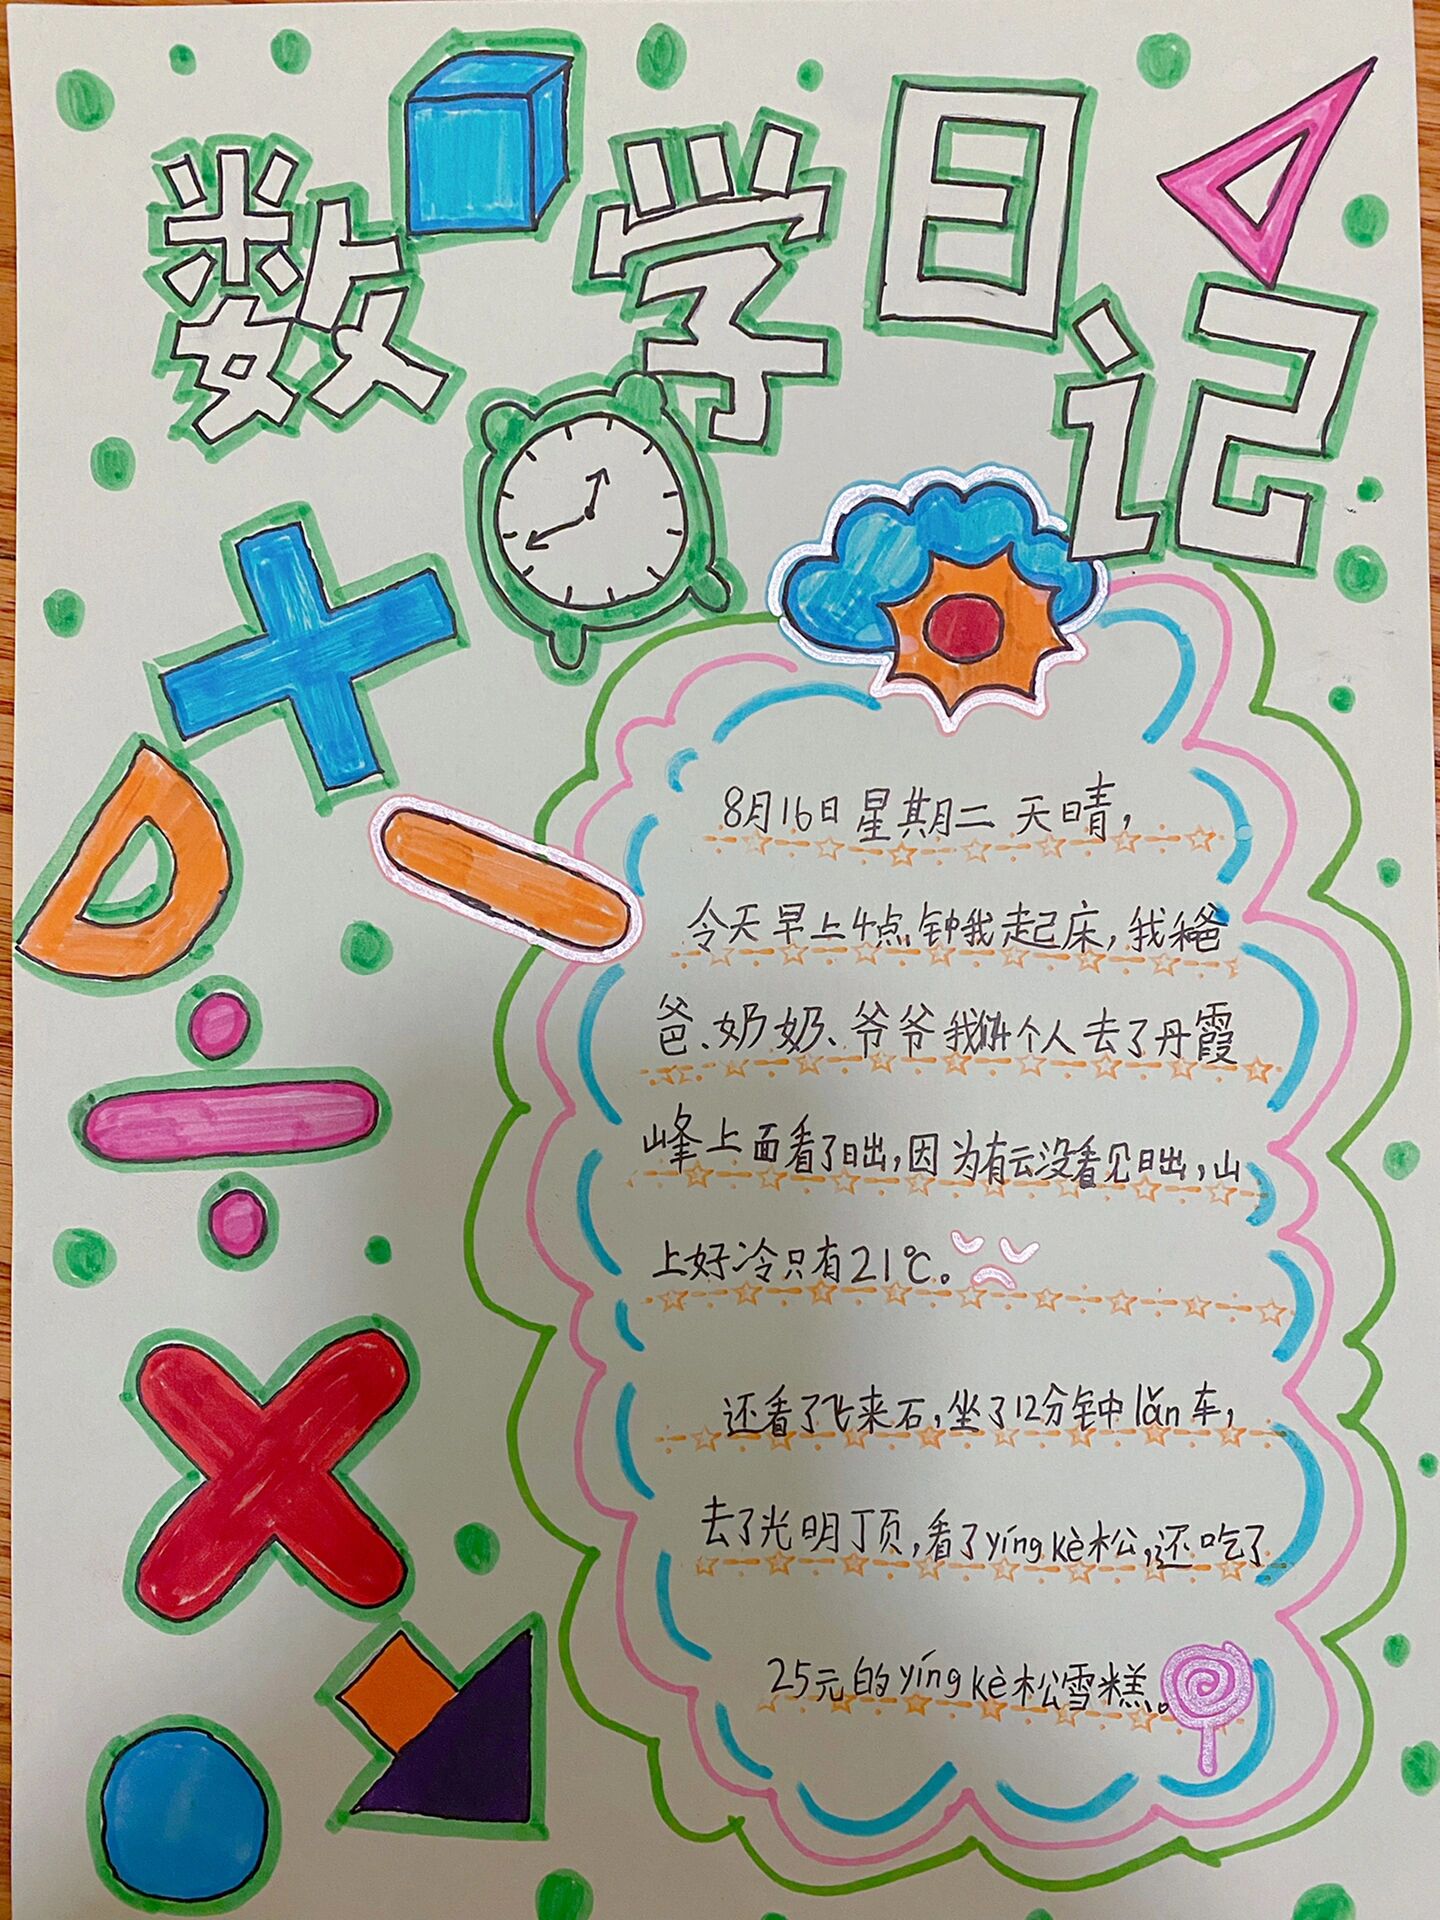 数学日记
8月16日星期二 天晴,
今天早上4点钟我起床,我和爸
爸、奶奶、爷爷我们4个人去了丹霞
峰上面看了日出,因为有云没看见日出,山
上好冷只有21℃。
还看了飞来石,坐了12分钟中lǎn车,
去了光明丁页,看了yíng kè松,还吃了
25元的yíng kè松雪糕。